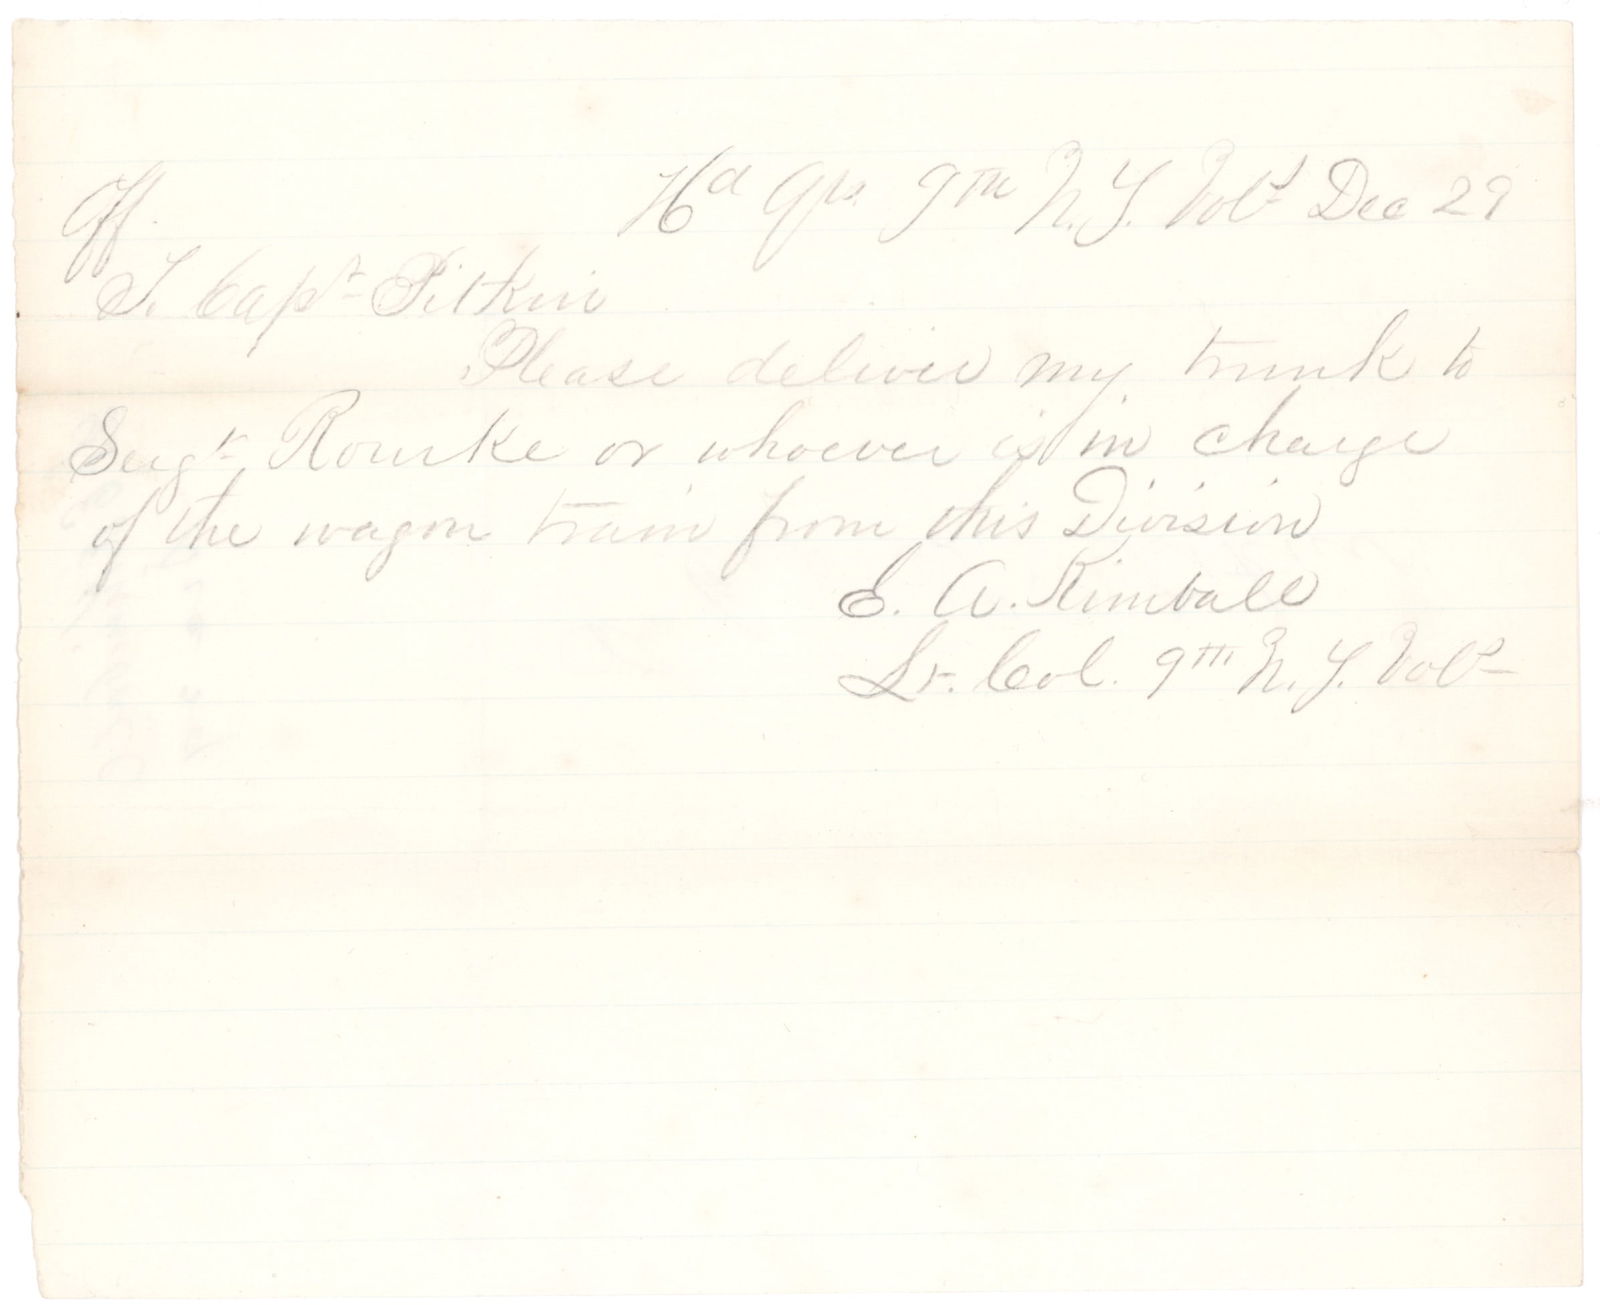 Hd Qrs. 9th N.Y. Vols Dec 29
Off.
T. Capt Pitkin
Please deliver my trunk to
Sergt Rourke or whoever is in charge
of the wagon train from this Division
E. A. Kimball
Lt. Col. 9th N.Y. Vols